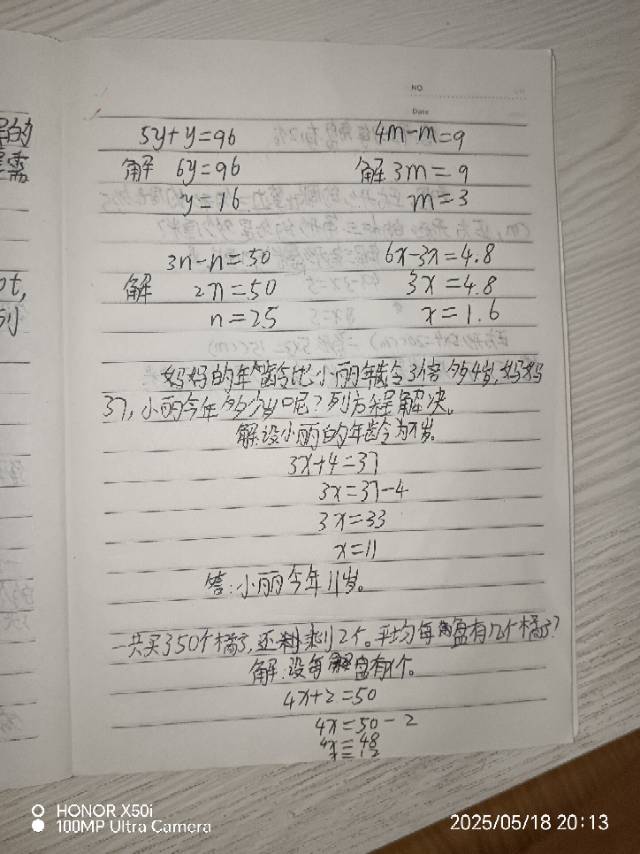 NO.
Date
5y+y=96 4m-m=9
解 6y=96 解 3m=9
y=16 m=3
3n-n=50 6x-3x=4.8
解 2n=50 3x=4.8
n=25 x=1.6
妈妈的年龄比小丽年龄3倍多4岁,妈妈
37,小丽今年多少岁呢?列方程解决。
解设小丽的年龄为x岁。
3x+4=37
3x=37-4
3x=33
x=11
答:小丽今年11岁。
一共买了50个橘子,还剩2个。平均每盘有几个橘子?
解:设每盘有x个。
4x+2=50
4x=50-2
4x=48
HONOR X50i
100MP Ultra Camera
2025/05/18 20:13